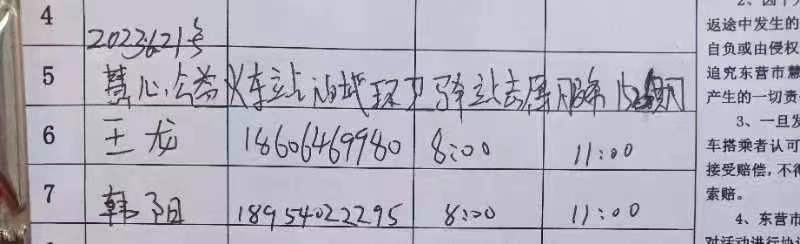 4
2023.6.21号
5 慧心公益火车站油城环卫驿站志愿服务
6 王龙 18606469980 8:00 11:00
7 韩阳 18954022295 8:00 11:00
返途中发生的
自负或由侵权
追究东营市慧
产生的一切责
3、一旦发
车搭乘者认可
接受赔偿,不得
索赔。
4、东营市